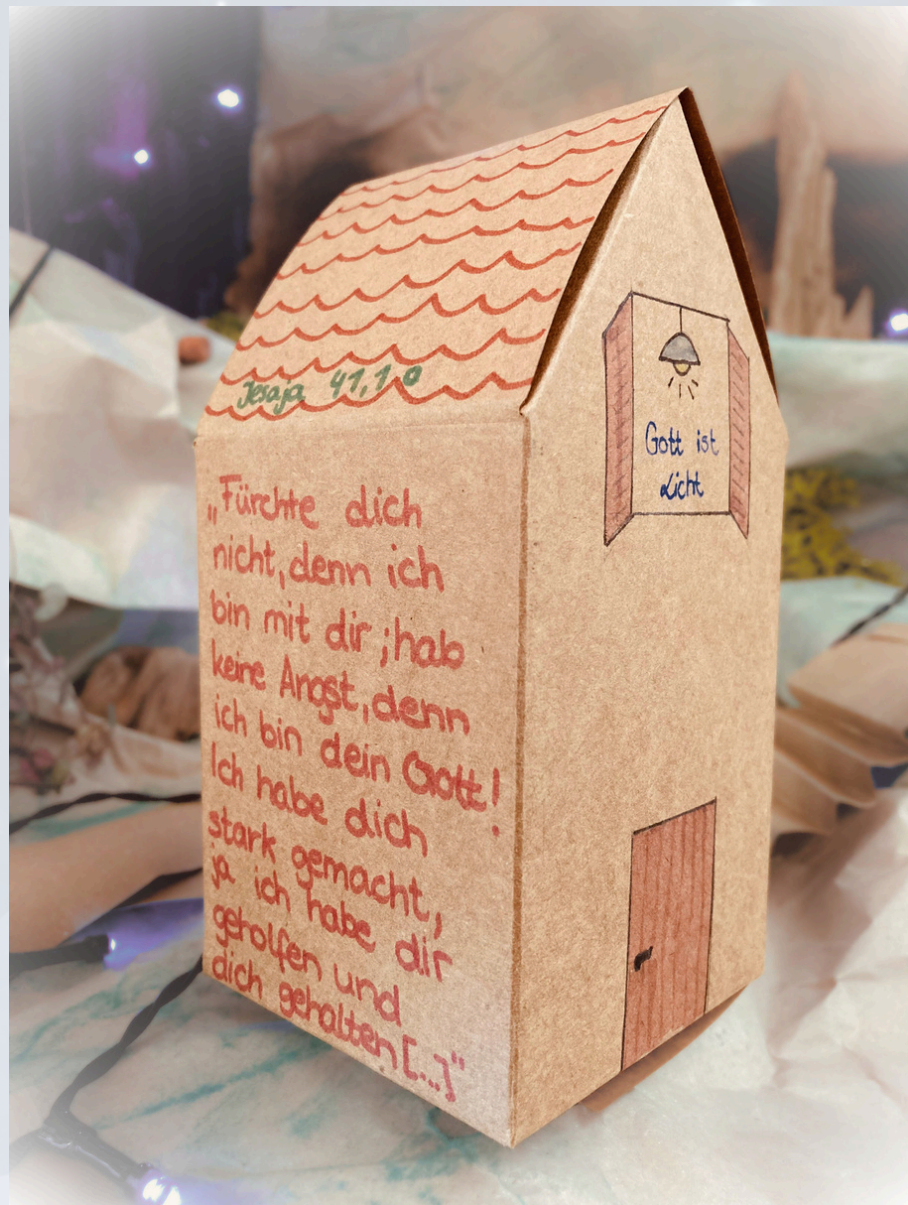 Jesaja 41,10
„Fürchte dich
nicht, denn ich
bin mit dir; hab
keine Angst, denn
ich bin dein Gott!
Ich habe dich
stark gemacht,
ja ich habe dir
geholfen und
dich gehalten [...]"
Gott ist
Licht